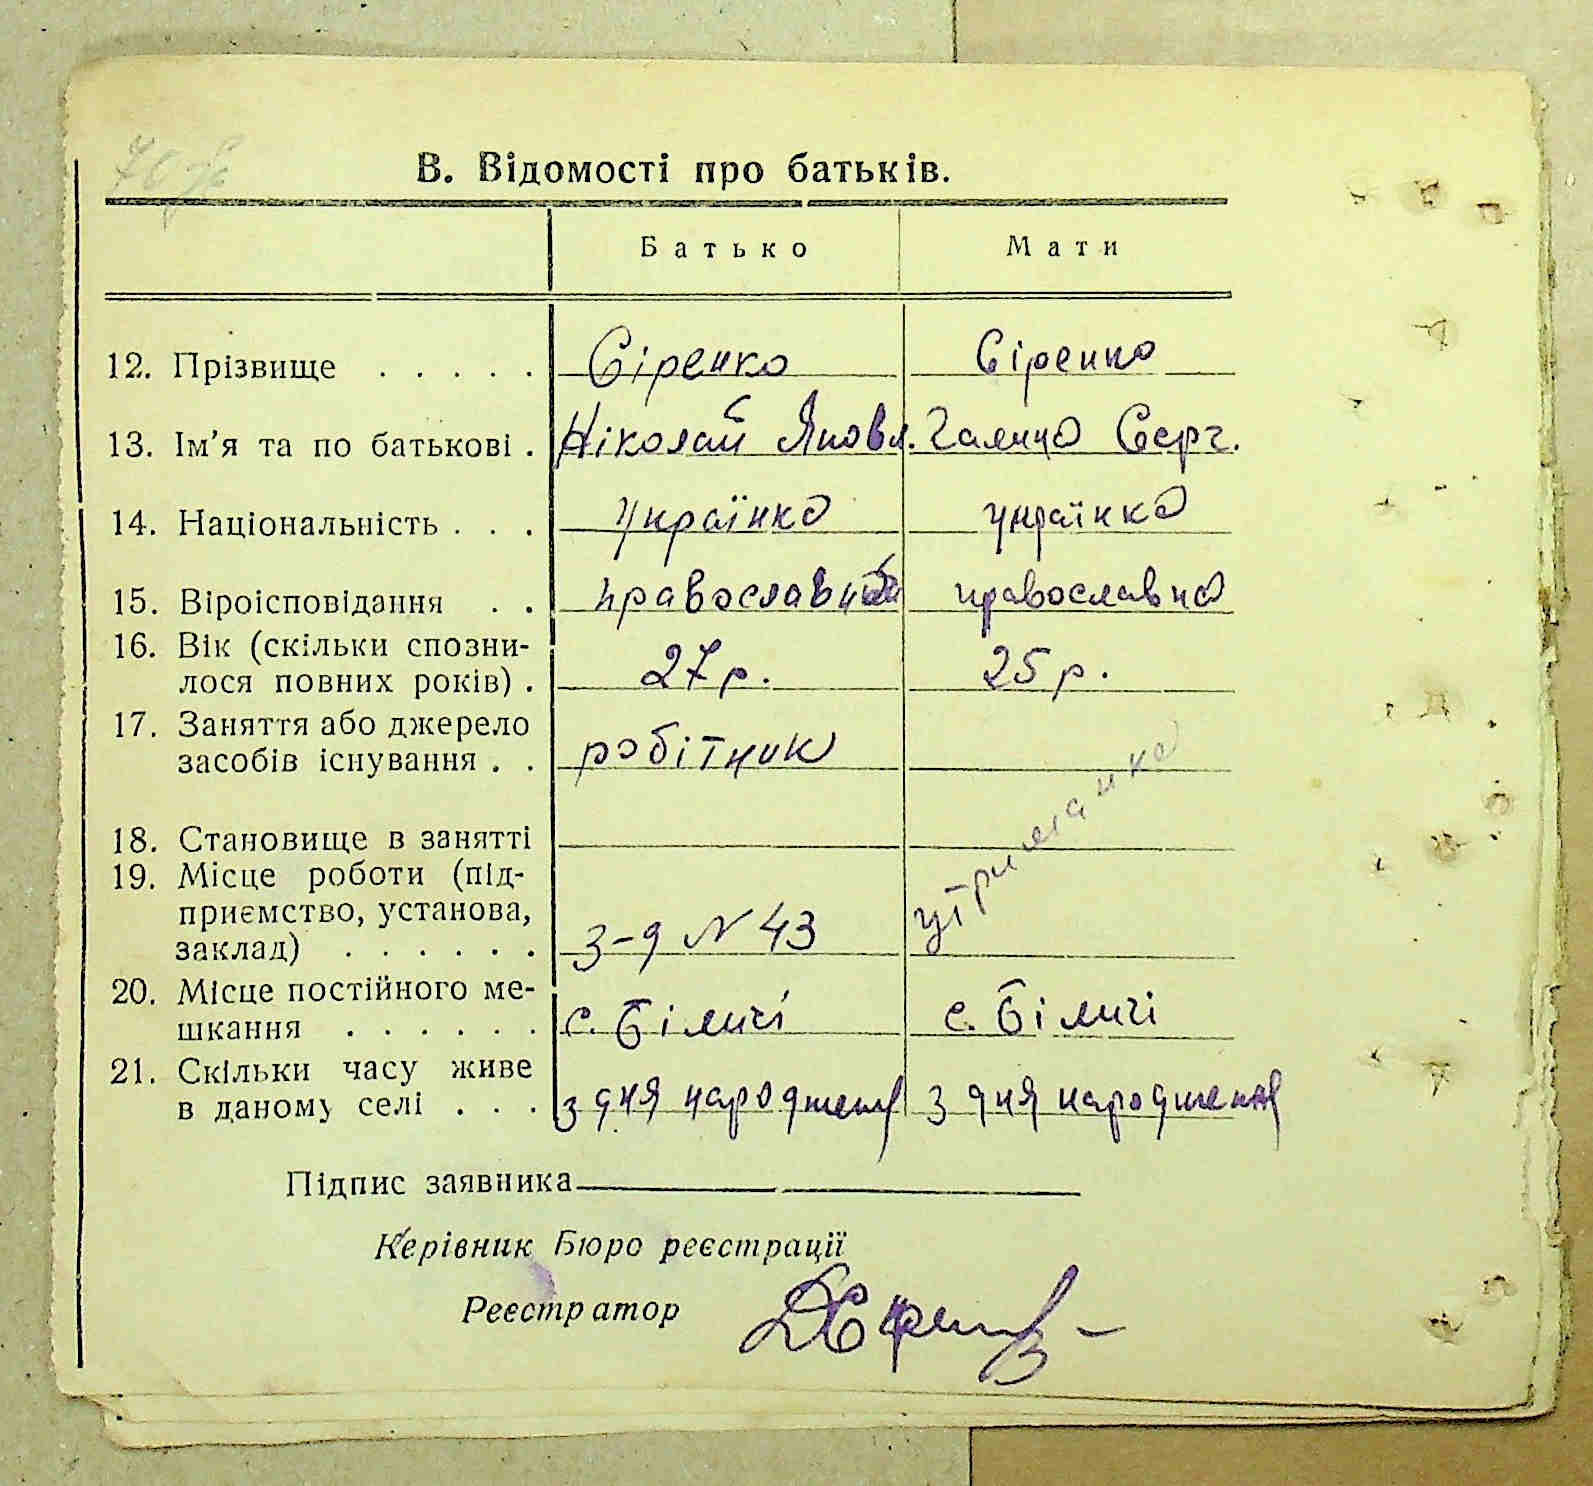 В. Відомості про батьків.
Батько Мати
12. Прізвище . . . . . Сіренко Сіренко
13. Ім'я та по батькові . Ніколай Яковл. Галина Серг.
14. Національність . . . Українка українка
15. Віроісповідання . . православний православна
16. Вік (скільки спозни-
лося повних років) . 27 р. 25 р.
17. Заняття або джерело
засобів існування . . робітник утриманка
18. Становище в занятті
19. Місце роботи (під-
приємство, установа,
заклад) . . . . . . з-д N 43
20. Місце постійного ме-
шкання . . . . . . с. Біличі с. Біличі
21. Скільки часу живе
в даному селі . . . з дня народження з дня народження
Підпис заявника
Керівник Бюро реєстрації
Реєстратор